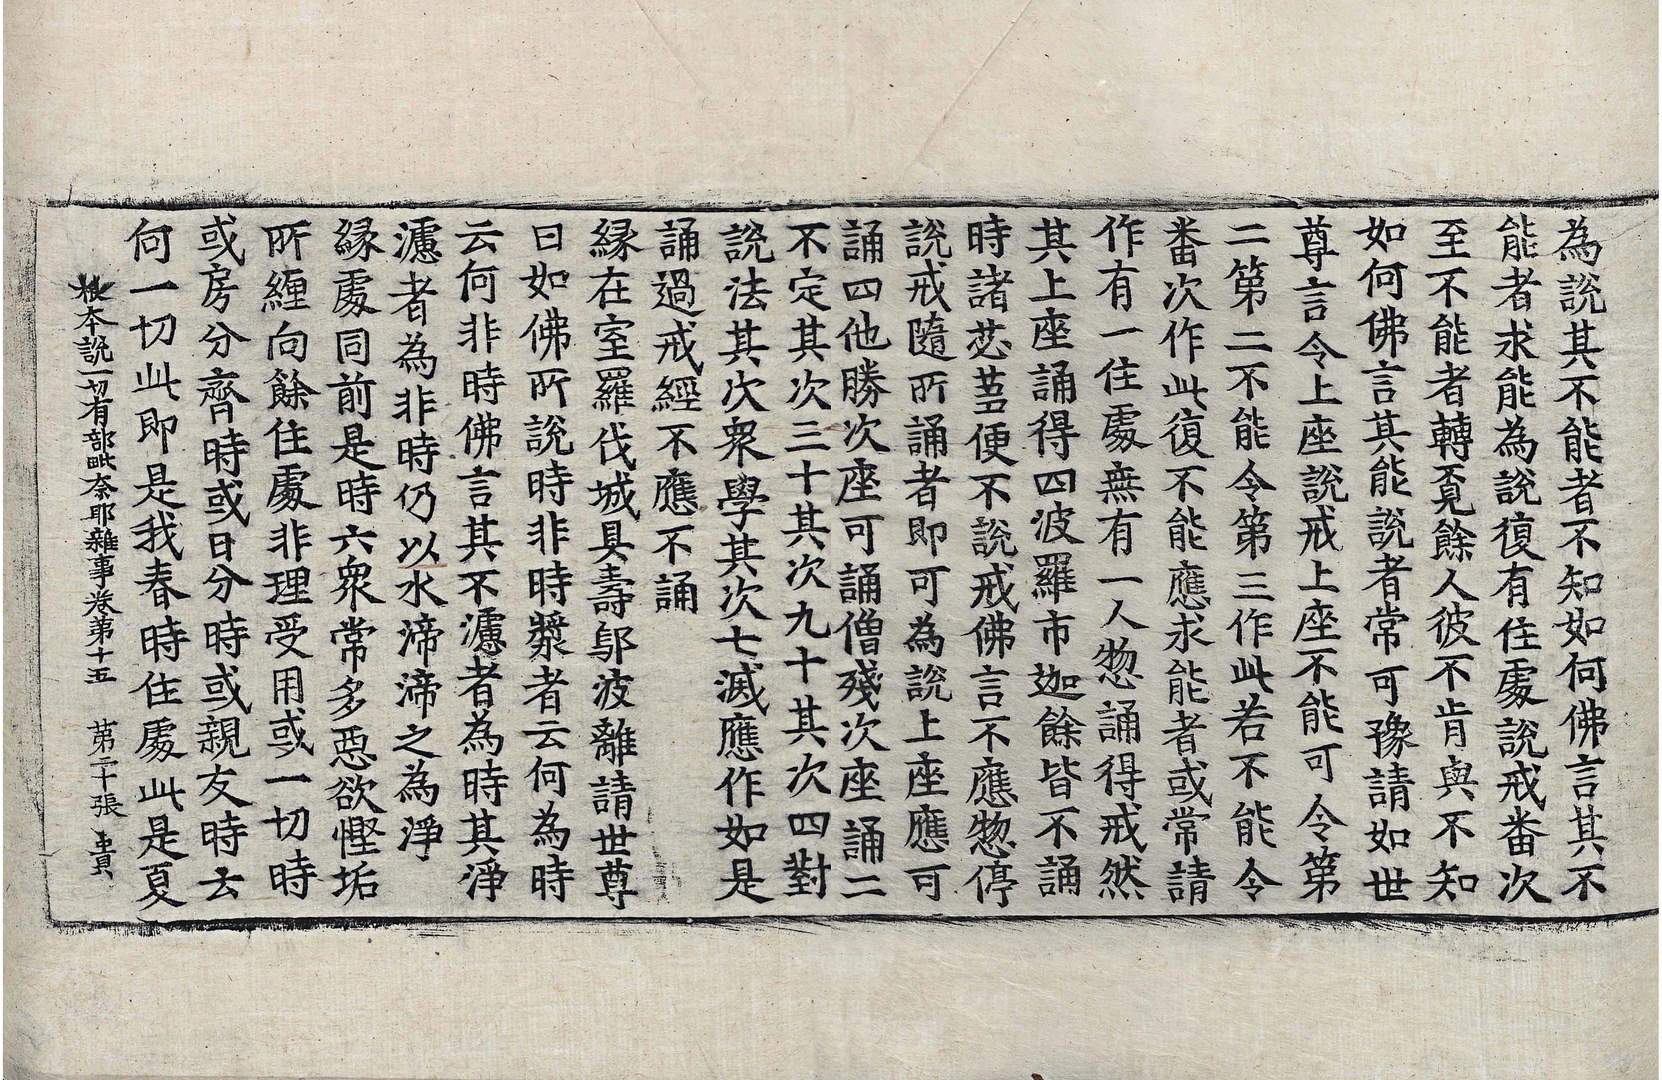 為說其不能者不知如何佛言其不
能者求能為說復有住處說戒番次
至不能者轉覔餘人彼不肯與不知
如何佛言其能說者常可豫請如世
尊言令上座說戒上座不能可令第
二第二不能令第三作此若不能令
番次作此復不能應求能者或常請
作有一住處無有一人惣誦得戒然
其上座誦得四波羅市迦餘皆不誦
時諸苾蒭便不說戒佛言不應惣停
說戒隨所誦者即可為說上座應可
誦四他勝次座可誦僧殘次座誦二
不定其次三十其次九十其次四對
說法其次衆學其次七滅應作如是
誦過戒經不應不誦
緣在室羅伐城具壽鄔波離請世尊
曰如佛所說時非時漿者云何為時
云何非時佛言其不濾者為時其淨
濾者為非時仍以水渧渧之為淨
緣處同前是時六衆常多惡欲慳垢
所纏向餘住處非理受用或一切時
或房分齊時或日分時或親友時云
何一切此即是我春時住處此是夏
根本說一切有部毗奈耶雜事卷第十五 第二十張